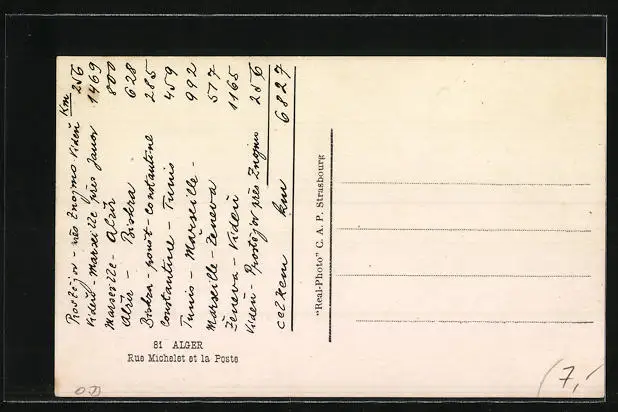 Km
Prostějov - přes Znojmo Videň 256
Videň - Marseille přes Janov 1469
Marseille - Alžír 800
Alžír - Biskra 628
Biskra - poušť - Constantine 285
Constantine - Tunis 459
Tunis - Marseille - 992
Marseille - Ženeva 517
Ženeva - Videň 1165
Videň - Prostějov přes Znojmo 256
celkem km 6827
"Real-Photo" C. A. P. Strasbourg
81 ALGER
Rue Michelet et la Poste
7,-